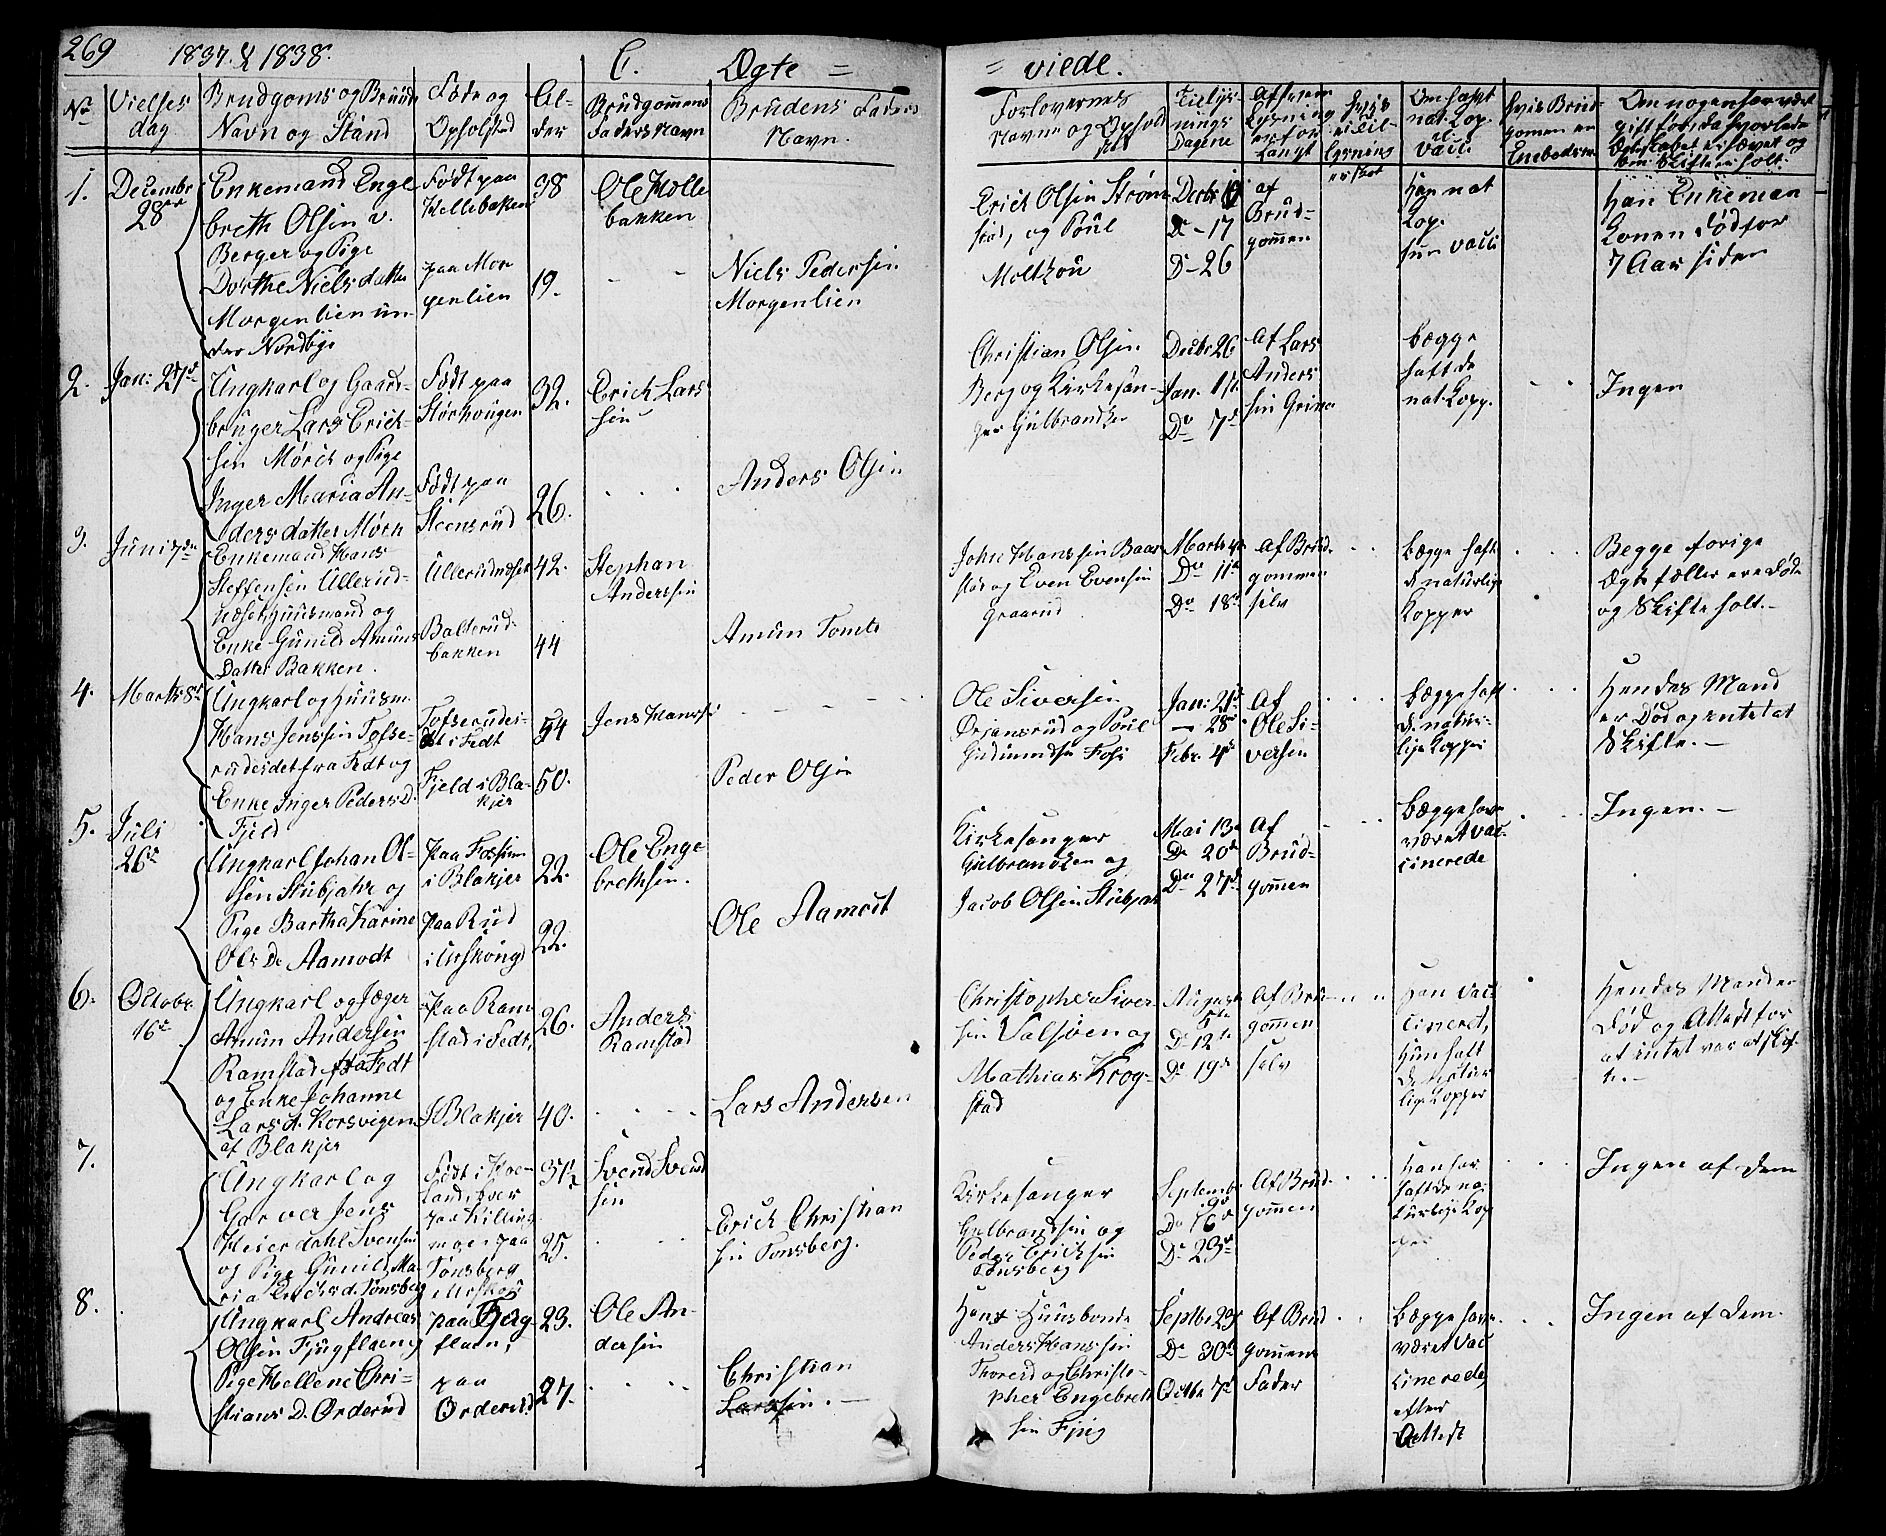 269
1837. & 1838.
C. Ægte = = viede.
No
Vielses dag
Brudgoms og Bruds Navn og Stand
Føde og Opholsted
Al- der
Brudgommens Faders Navn
Brudens Faders Navn.
Forlovernes Navne og Ophold
Tillys- nings Dagene
Af hvem Lysning er for- langt
Om hafft nat. Kop. el. vacc.
Hvis Brud- gomen er Embedsm.
1.
Decembr 28de
Enkemand Engel
breth Olsen v.
Berger og Pige
Dorthe Nielsdatter
Morgenlien un-
der Nordbye
Født paa
Kollebakken
paa Mor
genlien
38
19.
Ole Kolle
bakken
Niels Pedersen
Morgenlien
Erick Olsen Strøm
stad, og Poul
Moltzou
Decbr 10
Do - 17
Do - 26
af
Brud-
gommen
Han nat
Kop.
hun vacci
han Enkeman
Konen Død for
7 Aar siden
2.
Jan: 27de
Ungkarl og Gaard-
bruger Lars Erick-
sen Mørch og Pige
Inger Maria An-
dersdatter Mørk
Født paa
Størkougen
Født paa
Steensrud
32.
26.
Erick Lars
sen
Anders Olsen
Christian Olsen
Berg og Kirkesan-
ger Gulbrandsen
Decbr 26
Jan. 1st.
Do 7de
Af Lars
Anders
sen
bægge
haft de
nat. Kopp.
Ingen
3.
Juni 7de
Enkemand Hans
Steffensen Ullerud-
næset Huusmand og
Enke Gunild Amuns
Datter Bakken.
Ullerudnæset
Balterud-
bakken
42.
44
Stephan
Anderssen
Amun Tomte
John Hanssen Baar
stad og Even Evensen
Graarud
Marts 4de
Do 11te
Do 18de
af Brud-
gommen
selv
bægge haft
d. naturlige
Kopper
Begge forige
Ægtefæller ere Døde
og Skifte holt.-
4.
Marts 8de
Ungkarl og Huusm.
Hans Jenssen Tofse-
rudeidet fra Fedt og
Enke Inger Peders D.
Fjeld
Tofserudei-
det i Fedt
Fjeld i Bla-
kjer
54
50.
Jens Hanssen
Peder Olsen
Ole Siversen
Ørjansrud og Poul
Gudmundsen Fossi
Jan: 21de
- 28de
Febr. 4de
Af
Ole Si-
versen
bægge haft
de natur-
lige Kopper
Hendes Mand
er Død og intet at
Skifte.-
5.
Juli
26de
Ungkarl Johan Ol-
sen Stubjahr og
Pige Bartha Karine
Ols D. Aamodt
paa Fossum
i Blakjer
paa Rud
i Urskoug
22.
22.
Ole Enge
brethsen.
Ole Aamodt
Kirkesanger
Gulbrandsen og
Jacob Olsen Stubjar
Mai 13de
Do 20de
Do 27de
Af
Brud-
gommen
Bægge have
været vac-
cinerede
Ingen.-
6.
Octobr.
16de
Ungkarl og Jæger
Amun Andersen
Ramstad fra Fedt
og Enke Johanne
Lars D. Korsvigen
af Blakjer
paa Ram
stad i Fedt,
I Blakjer
26.
40.
Anders
Ramstad
Lars Andersen
Christopher Siver-
sen Valsøen og
Mathias Krog-
stad
August
5te
Do 12te
Do 19de
Af Brud-
gommen
selv
Han vac-
cineret,
Hun haft
de natur
lige Kopper
Hendes Mand er
Død og Attest for
at intet var at skif-
te.-
7.
Ungkarl og
Garver Jens
Heierdahl Svensen
og Pige Gunild Ma-
ria Ericksd. Tonsberg
Tonsberg
i Urskoug
31½
25.
Svend Svend
sen
Erick Christian
sen Tonsberg.
Kirkesanger
Gulbrandsen og
Peder Ericksen
Tonsberg
September
9de
Do 16de
Do 23de
Af Brud-
gommen
Han har
haft de na-
turlige Kop
per
Ingen af Dem
8.
Ungkarl Andreas
Olsen Fjugflaen og
Pige Hellene Chri-
stians D. Orderud
paa Fjug
flaen,
paa
Orderud
23.
27.
Ole An-
dersen
Christian
Larssen.-
Hans Huusbonde
Anders Hanssen
Thoresd og Christo-
pher Engebreth
sen Fjug
Septbr 23de
Do 30te
Octbr 7de
Af Brud
gommens
Fader
Bægge have
været vac
cinerede,
efter
Attest
Ingen af dem